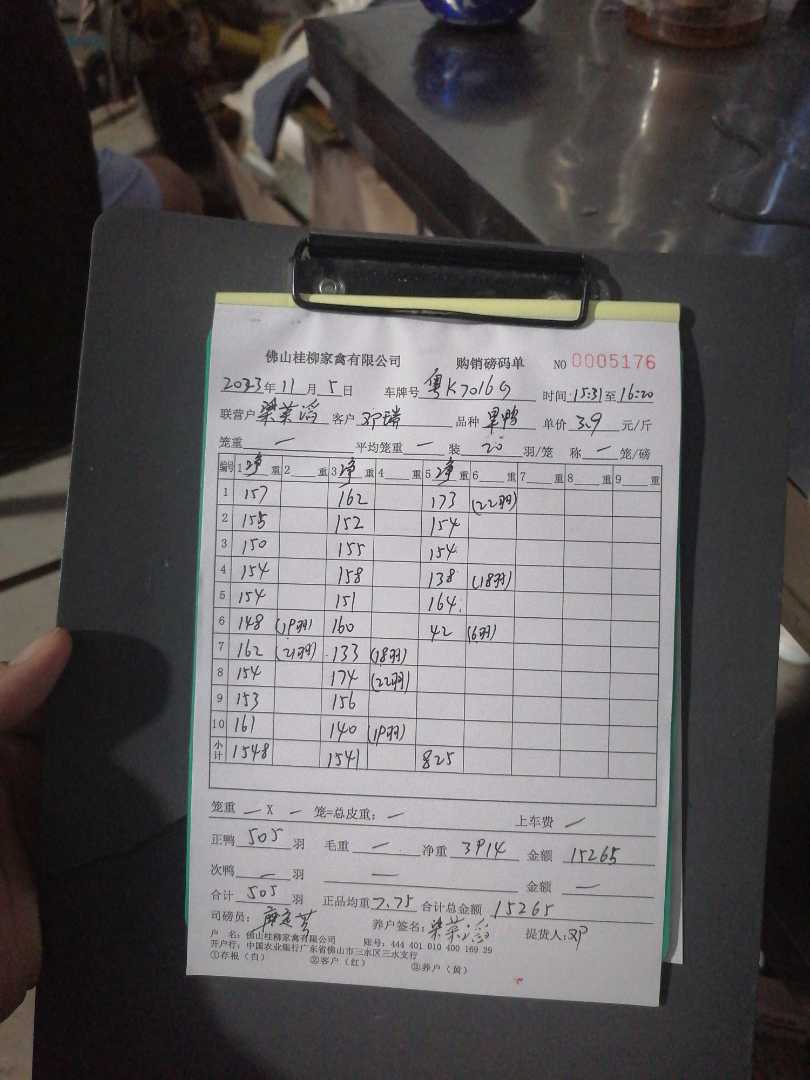 佛山桂柳家禽有限公司 购销磅码单 NO 0005176
2023年11月5日 车牌号 粤K7016G 时间 15:31至16:20
联营户 梁菜滔 客户 邓璘 品种 果鸭 单价 3.9 元/斤
笼重 — 平均笼重 — 装 20 羽/笼 称 — 笼/磅
编号 1 净 重 2 重 3 净 重 4 重 5 净 重 6 重 7 重 8 重 9 重
1 157 162 173 (22羽)
2 155 152 154
3 150 155 154
4 154 158 138 (18羽)
5 154 151 164
6 148 (19羽) 160 42 (6羽)
7 162 (21羽) 133 (18羽)
8 154 174 (22羽)
9 153 156
10 161 140 (19羽)
小计 1548 1541 825
笼重 — X — 笼=总皮重: — 上车费 —
正鸭 505 羽 毛重 — 净重 3914 金额 15265
次鸭 — 羽 — 金额 —
合计 505 羽 正品均重 7.75 合计总金额 15265
司磅员: 养户签名: 梁菜滔 提货人: 邓
户 名: 佛山桂柳家禽有限公司 账号: 444 401 010 400 169 29
开户行: 中国农业银行广东省佛山市三水区三水支行
①存根(白) ②客户(红) ③养户(黄)